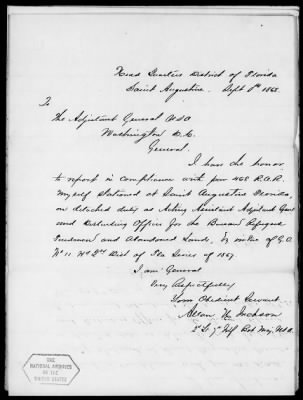 Head Quarters District of Florida
Saint Augustine Sept 1st 1868
To
The Adjutant General USA
Washington D.C.
General.
I have the honor
to report in compliance with par 468 R.A.R.
Myself Stationed at Saint Augustine Florida,
on detached duty as Acting Assistant Adjutant Genl
and Disbursing Officer for the Bureau Refugees
Freedmen and Abandoned Lands, by virtue of G.O.
No 11 Hd Qrs Dist of Fla Series of 1867.
I am General
Very Respectfully
Your Obedient Servant
Allan H. Jackson
2d Lt 7th Inf Bvt Maj. U.S.A.
THE
NATIONAL ARCHIVES
OF THE
UNITED STATES